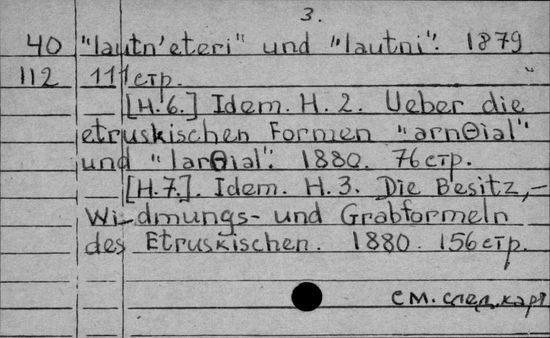 3.
40 "lautn'eteri" und "lautni". 1879
112 111 стр.
[H.6.] Idem. H. 2. Ueber die
etruskischen Formen "arnΘial"
und "larΘial". 1880. 76 стр.
[H.7.]. Idem. H. 3. Die Besitz,-
Wi-dmungs- und Grabformeln
des Etruskischen. 1880. 156 стр.
см. след. карт